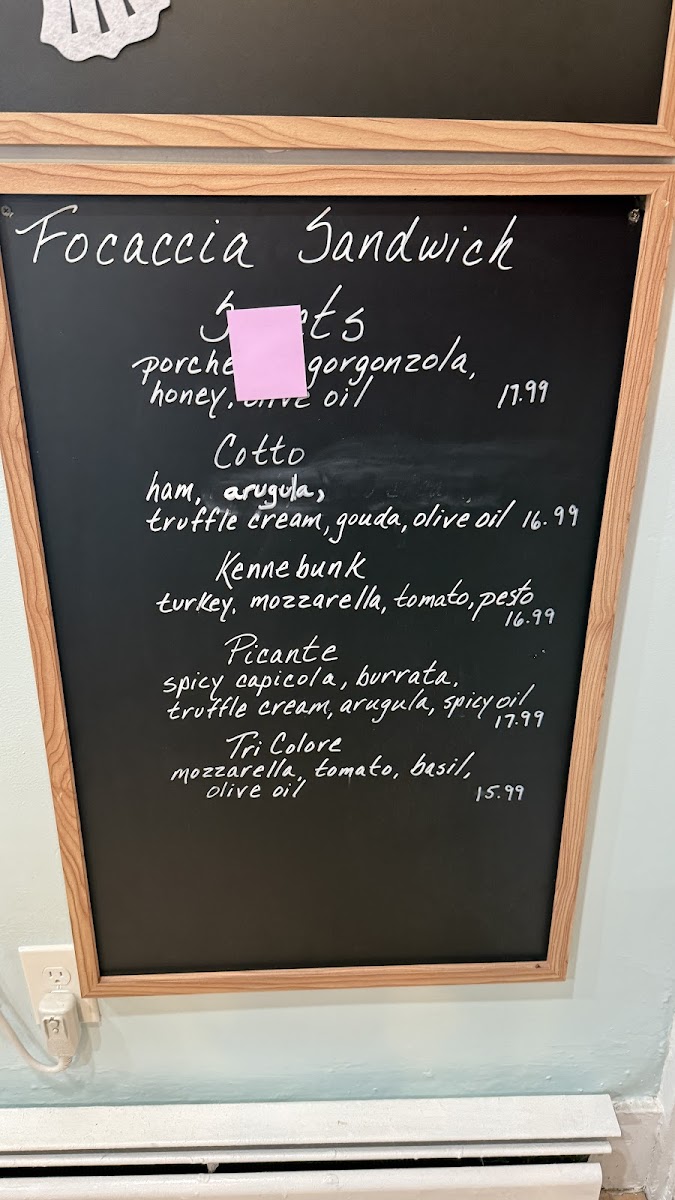 Focaccia Sandwich
gorgonzola,
honey, olive oil 17.99
Cotto
ham, arugula,
truffle cream, gouda, olive oil 16.99
Kennebunk
turkey, mozzarella, tomato, pesto
16.99
Picante
spicy capicola, burrata,
truffle cream, arugula, spicy oil
17.99
Tri Colore
mozzarella, tomato, basil,
olive oil 15.99